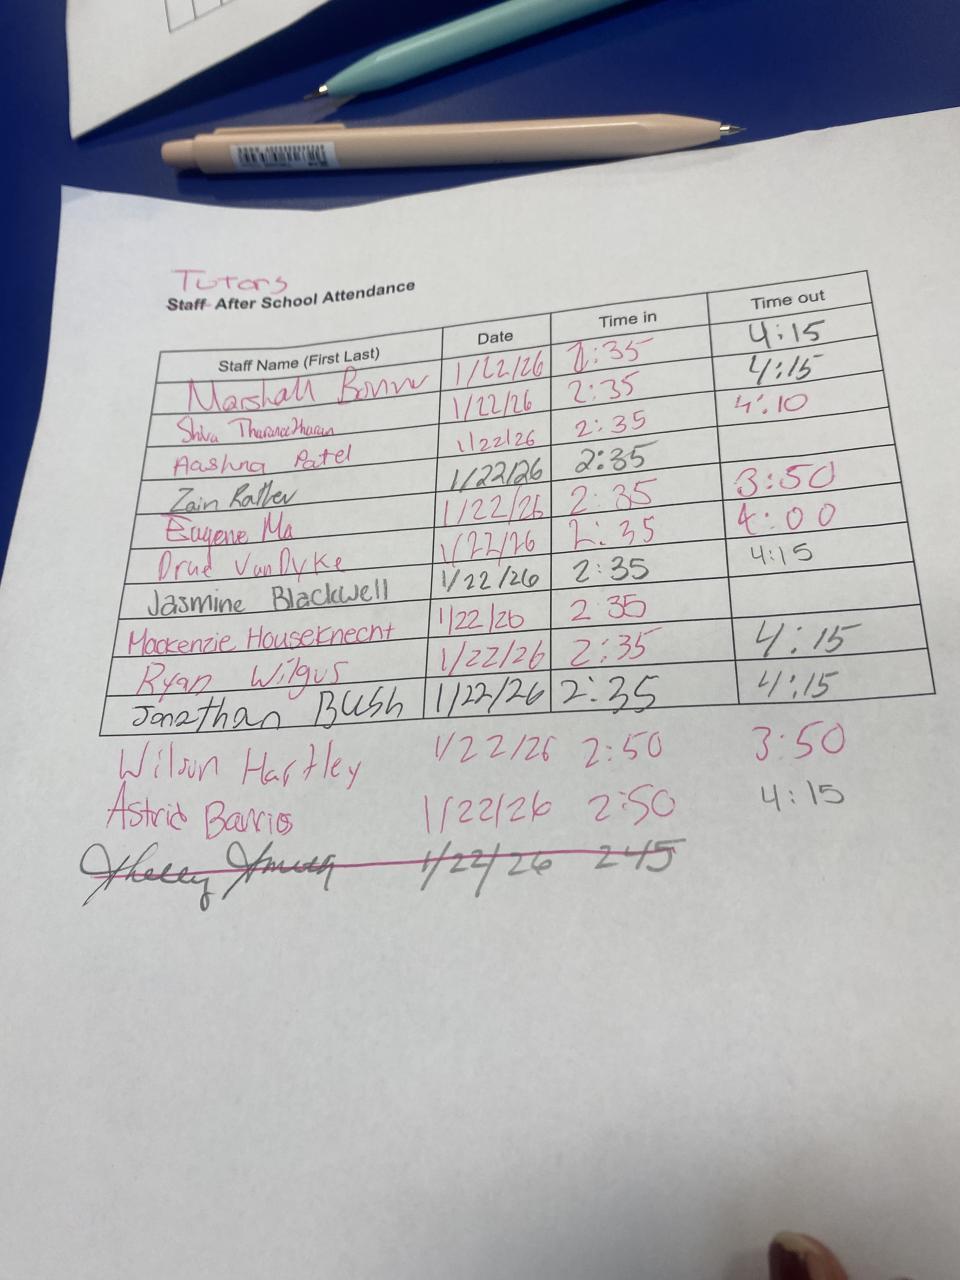 Tutors
Staff After School Attendance
Staff Name (First Last) Date Time in Time out
Marshall 1/22/26 2:35 4:15
Shiva Tharaneetharan 1/22/26 2:35 4:15
Aashna Patel 1/22/26 2:35 4:10
Zain 1/22/26 2:35
Eugene Ma 1/22/26 2:35 3:50
Drue VanDyke 1/22/26 2:35 4:00
Jasmine Blackwell 1/22/26 2:35 4:15
Mackenzie Houseknecht 1/22/26 2 35
Ryan Wilgus 1/22/26 2:35 4:15
Jonathan Bush 1/22/26 2:35 4:15
Wilson Hartley 1/22/26 2:50 3:50
Astrid Barrios 1/22/26 2:50 4:15
Smith 1/22/26 245